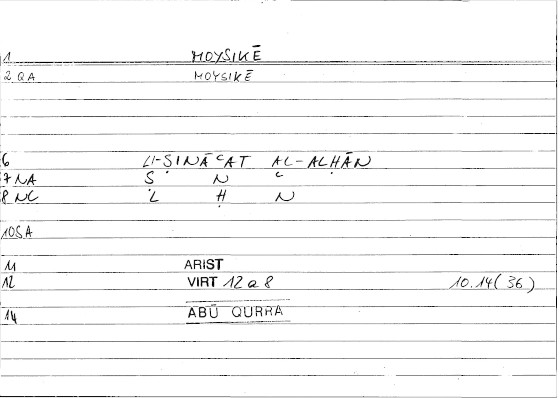 1 MOYSIKĒ
2 QA MOYSIKĒ
6 LI-ṢINĀʿAT AL-ALḤĀN
7 NA Ṣ N ʿ
8 NC L Ḥ N
10 SA
11 ARIST
12 VIRT 12 a 8 10.14(36)
14 ABŪ QURRA